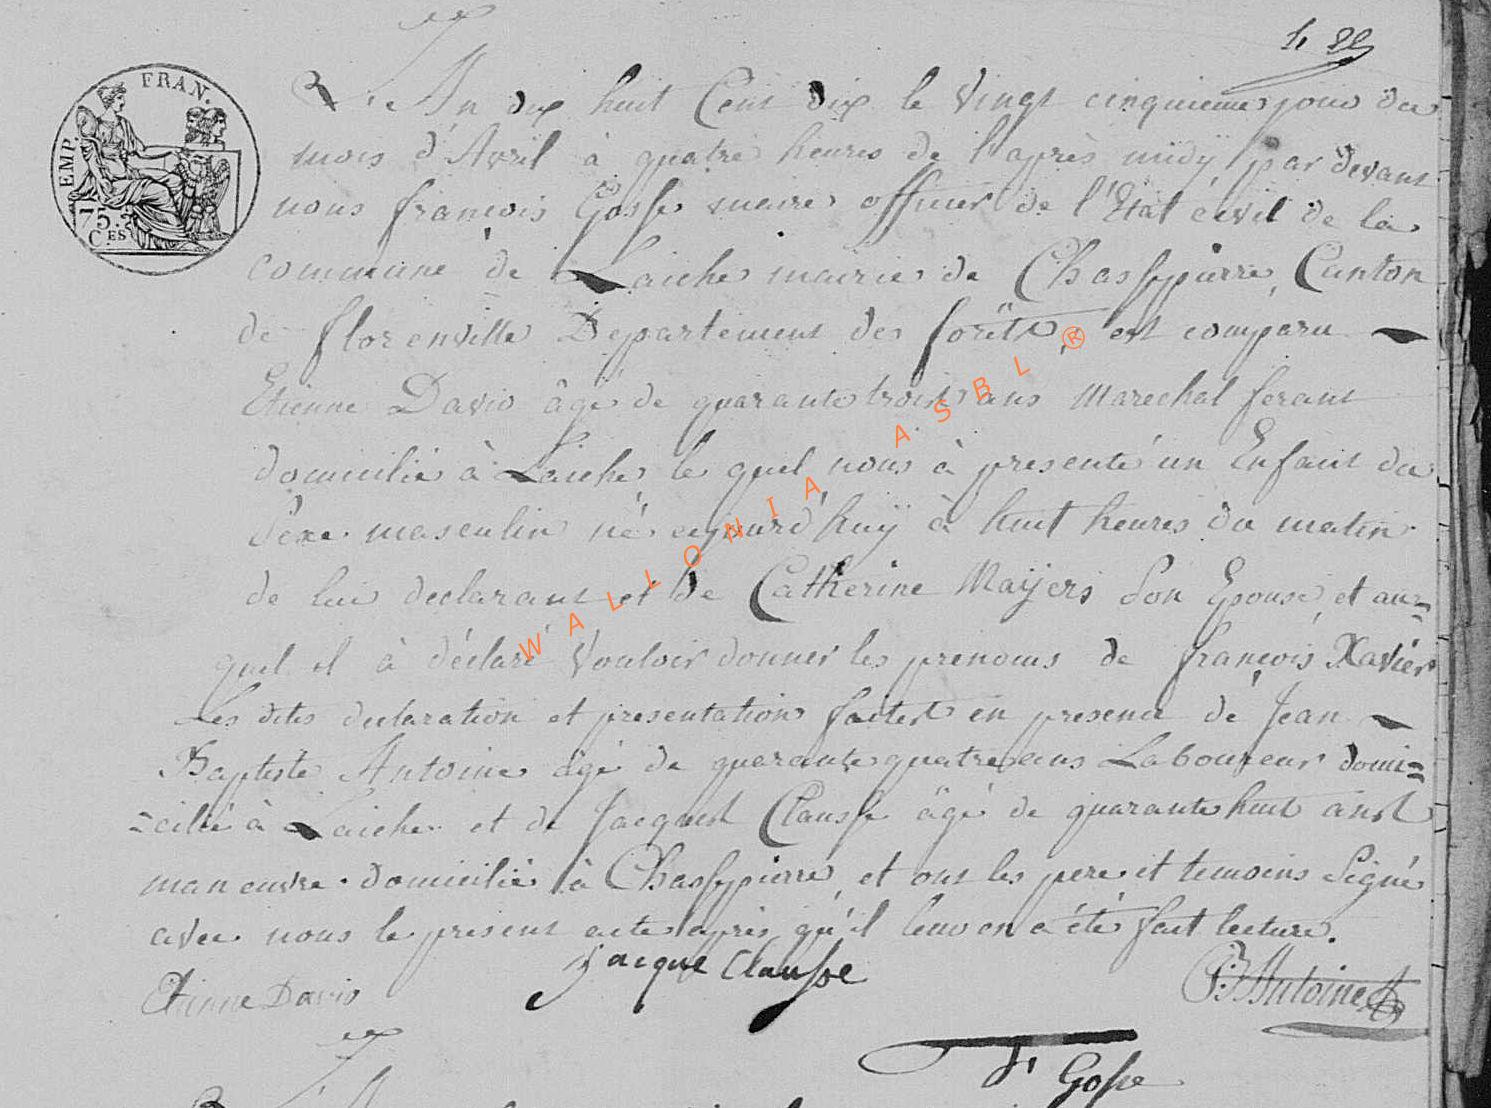 FRAN.
EMP.
75.
CES
L'An dix huit Cent dix le Vingt cinquieme jour du
mois d'Avril à quatre heures de l'après midÿ par devant
nous françois Gosse maire officier de l'Etat civil de la
commune de Laiche mairie de Chassepierre, Canton
de florenville Departement des forêts, est comparu
Etienne David âgé de quarante trois ans Marechal ferant
domicilié à Laiche le quel nous à presenté un Enfant du
Sexe masculin né aujourd'huÿ à huit heures du matin
de lui declarant et de Catherine Maÿers Son Epouse, et au=
quel il à déclaré Vouloir donner les prenoms de françois Xavier
Les dites declaration et presentation faites en presence de Jean
Baptiste Antoine âgé de quarante quatre ans Laboureur domi=
=cilié à Laiche et de Jacques Clausse âgé de quarante huit ans
maneuvre domicilié à Chassepierre, et ont les pere et temoins Signé
avec nous le present acte après qu'il leur en a été fait lecture.
Etienne David
Jacque Clausse
JB Antoine
f Gosse
WALLONIA ASBL ®